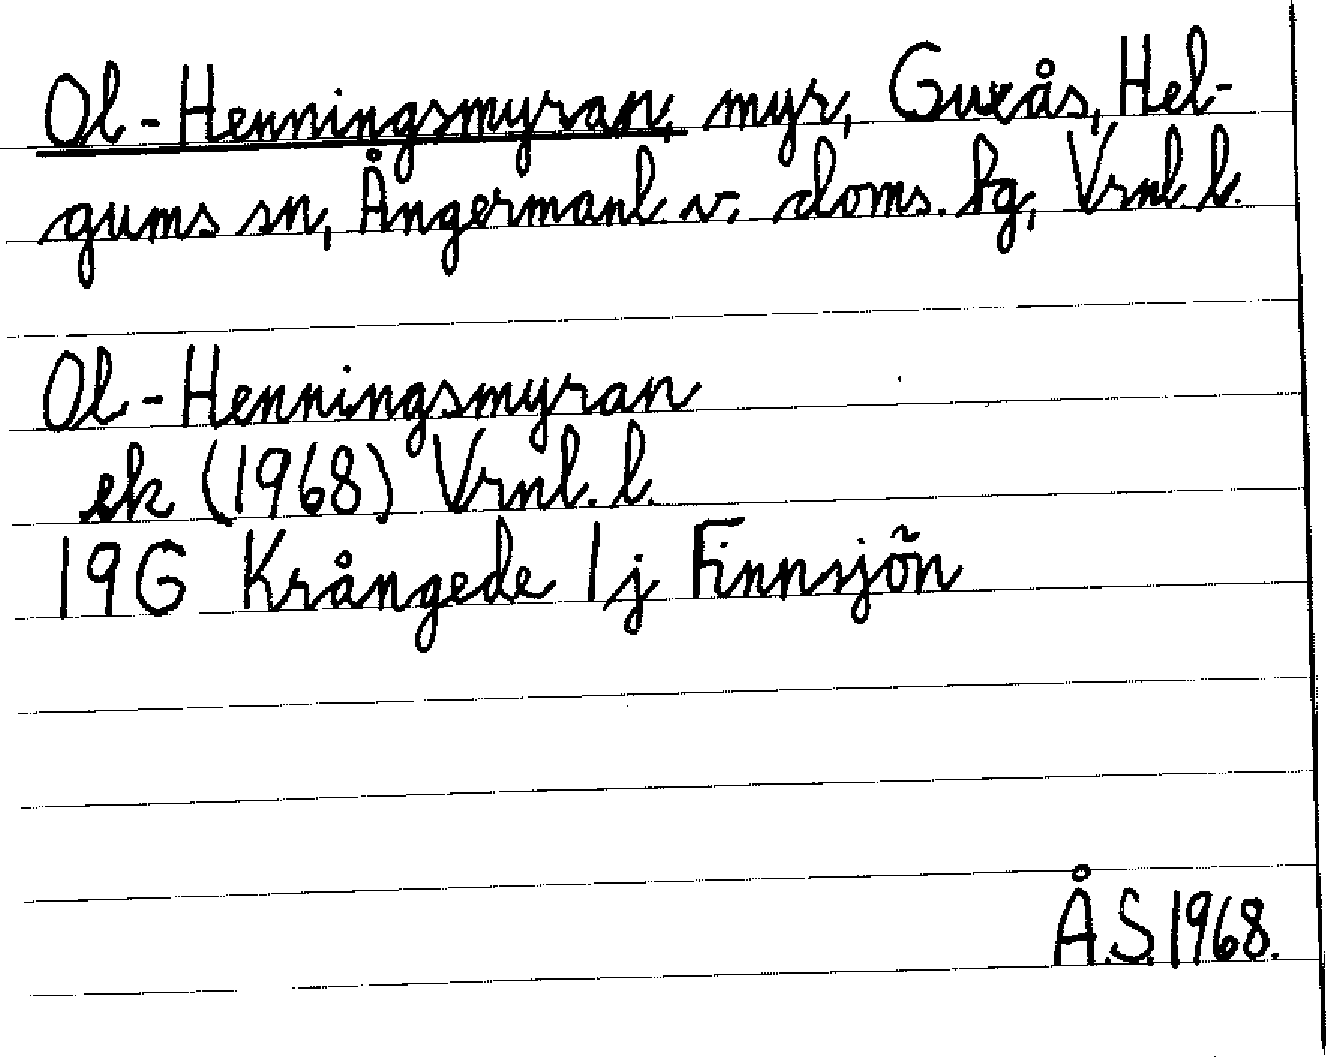 Ol-Henningsmyran, myr, Guxås, Hel-
gums sn, Ångermanl. v. doms. tg, Vrnl. l.
Ol-Henningsmyran
ek (1968) Vrnl. l.
19G Krångede 1j Finnsjön
Å.S. 1968.